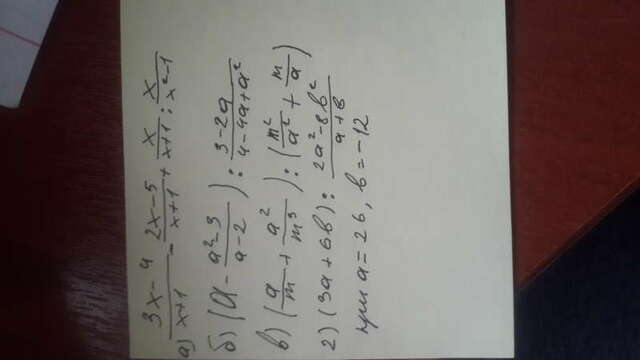 а) (3x-4)/(x+1) - (2x-5)/(x+1) + x/(x+1) : x/(x²-1)
б) (a - (a²-3)/(a-2)) : (3-2a)/(4-4a+a²)
в) (a/m + a²/m³) : (m²/a² + m/a)
2) (3a+6b) : (2a²-8b²)/(a+b)
при a=26, b=-12